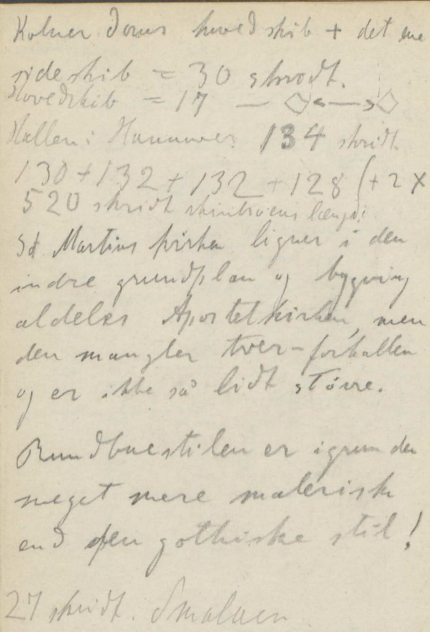 Kolner Doms hovedskib + det ene
sideskib = 30 skridt.
Hovedskib = 17 — ◇<—>◇
Hallen i Hannover 134 skridt
130 + 132 + 132 + 128 (+ 2 X
520 skridt længde
Skt Martins kirke ligner i den
indre grundplan og bygning
aldeles Apostelkirken, men
den mangler tver-forhallen
og er ikke så lidt större.
Rundbuestilen er i grunden
meget mere malerisk
end den gothiske stil!
27 skridt. Smalner